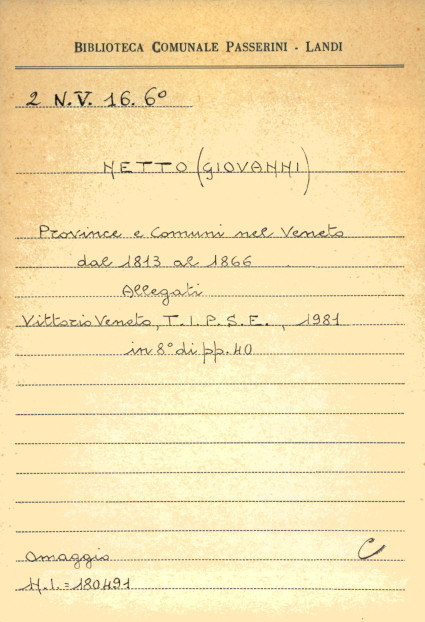 BIBLIOTECA COMUNALE PASSERINI - LANDI
2 N.V. 16. 6°
NETTO (GIOVANNI)
Province e Comuni nel Veneto
dal 1813 al 1866
Allegati
Vittorio Veneto, T.I.P.S.E., 1981
in 8° di pp. 40
Omaggio C
N.I. = 180491